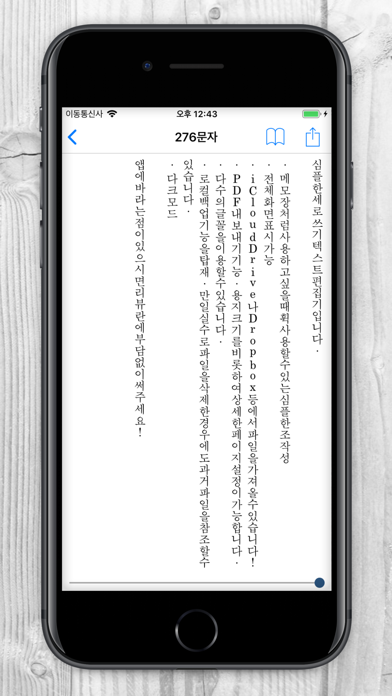 이동통신사
오후 12:43
276문자
심플한세로쓰기텍스트편집기입니다.
·메모장처럼사용하고싶을때휙사용할수있는심플한조작성
·전체화면표시가능
·iCloudDrive나Dropbox등에서파일을가져올수있습니다!
·PDF내보내기기능.용지크기를비롯하여상세한페이지설정이가능합니다.
·다수의글꼴을이용할수있습니다.
·로컬백업기능을탑재.만일실수로파일을삭제한경우에도과거파일을참조할수
있습니다.
·다크모드
앱에바라는점이있으시면리뷰란에부담없이써주세요!